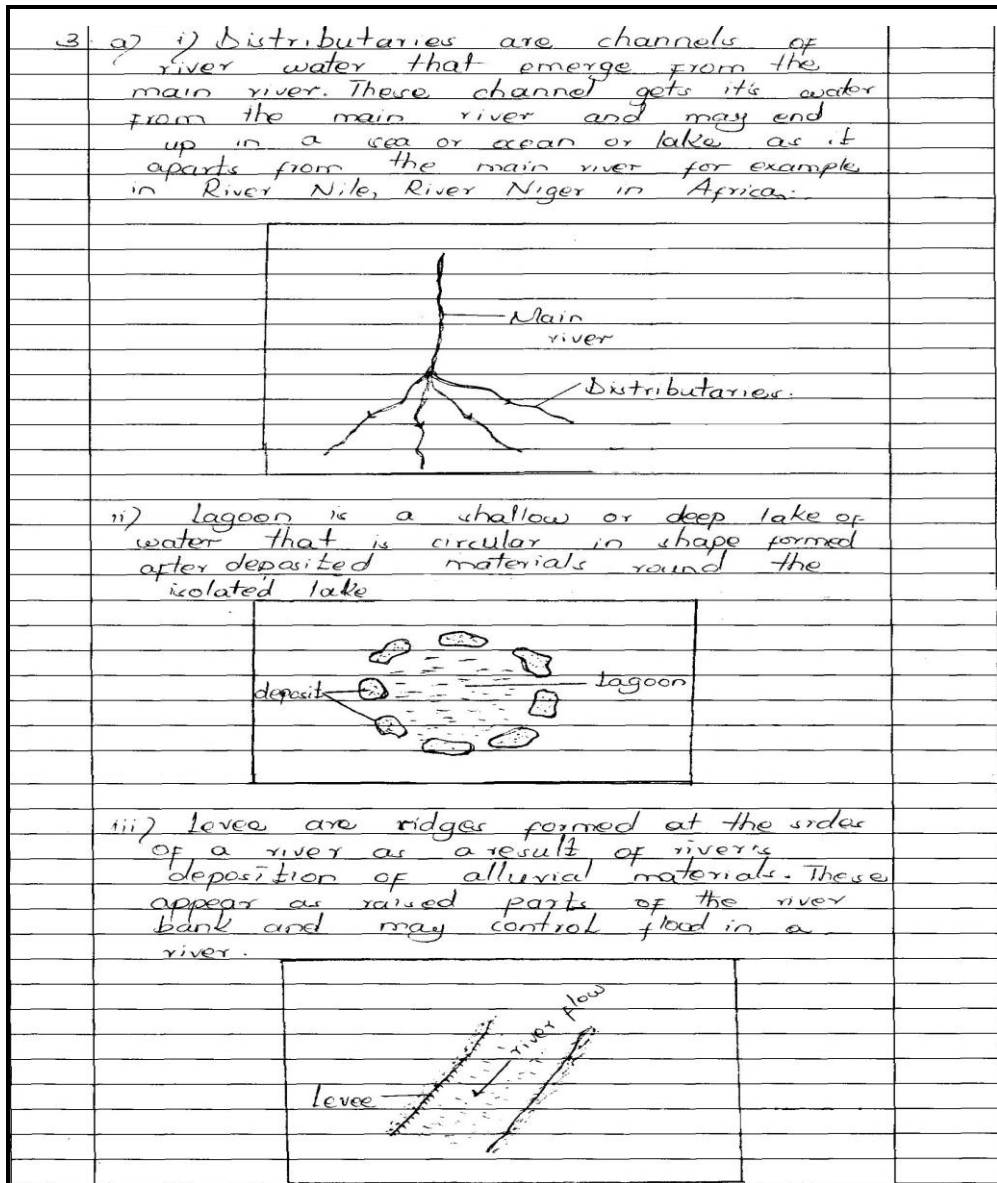 3. a) i) Distributaries are channels of
river water that emerge from the
main river. These channel gets it's water
from the main river and may end
up in a sea or ocean or lake as it
aparts from the main river for example
in River Nile, River Niger in Africa.
Main
river
Distributaries.
ii) Lagoon is a shallow or deep lake of
water that is circular in shape formed
after deposited materials round the
isolated lake
deposit
Lagoon
iii) Levee are ridges formed at the sides
of a river as a result of river's
deposition of alluvial materials. These
appear as raised parts of the river
bank and may control flood in a
river.
river flow
Levee